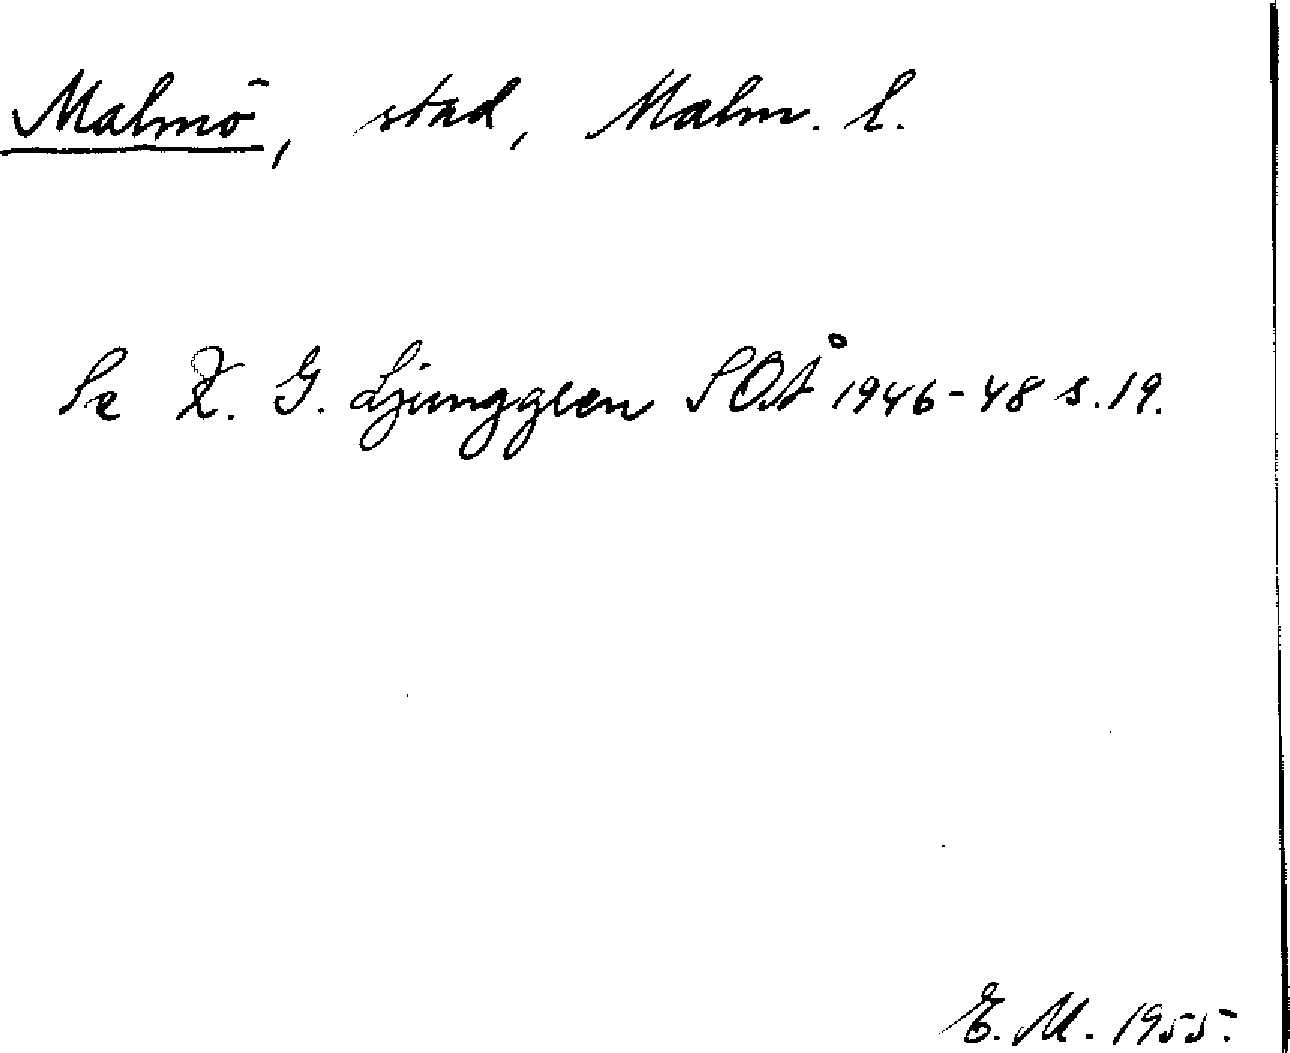 Malmö, stad, Malm. l.
Se K. G. Ljunggren SOÅ 1946-48 s. 19.
E. M. 1955.